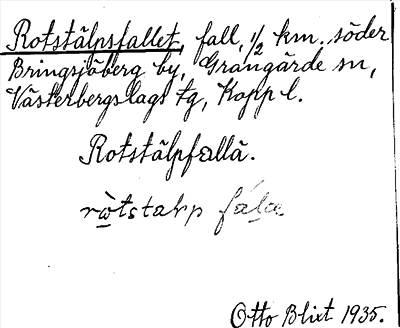 Rotstälpsfallet, fall, ½ km. söder
Bringsjöberg by, Grangärde sn,
Västerbergslags tg, Kopp l.
Rotstälpfallä.
Otto Blixt 1935.